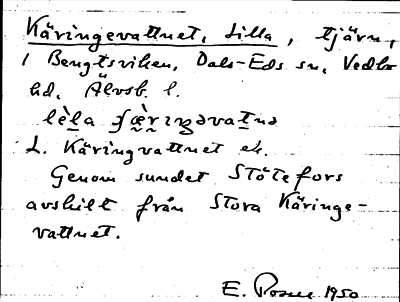 Käringevattnet, Lilla, tjärn,
i Bengtsviken, Dals-Eds sn, Vedbo
hd. Älvsb. l.
L. Käringvattnet ek.
Genom sundet Stötefors
avskilt från Stora Käringe-
vattnet.
E. 1950